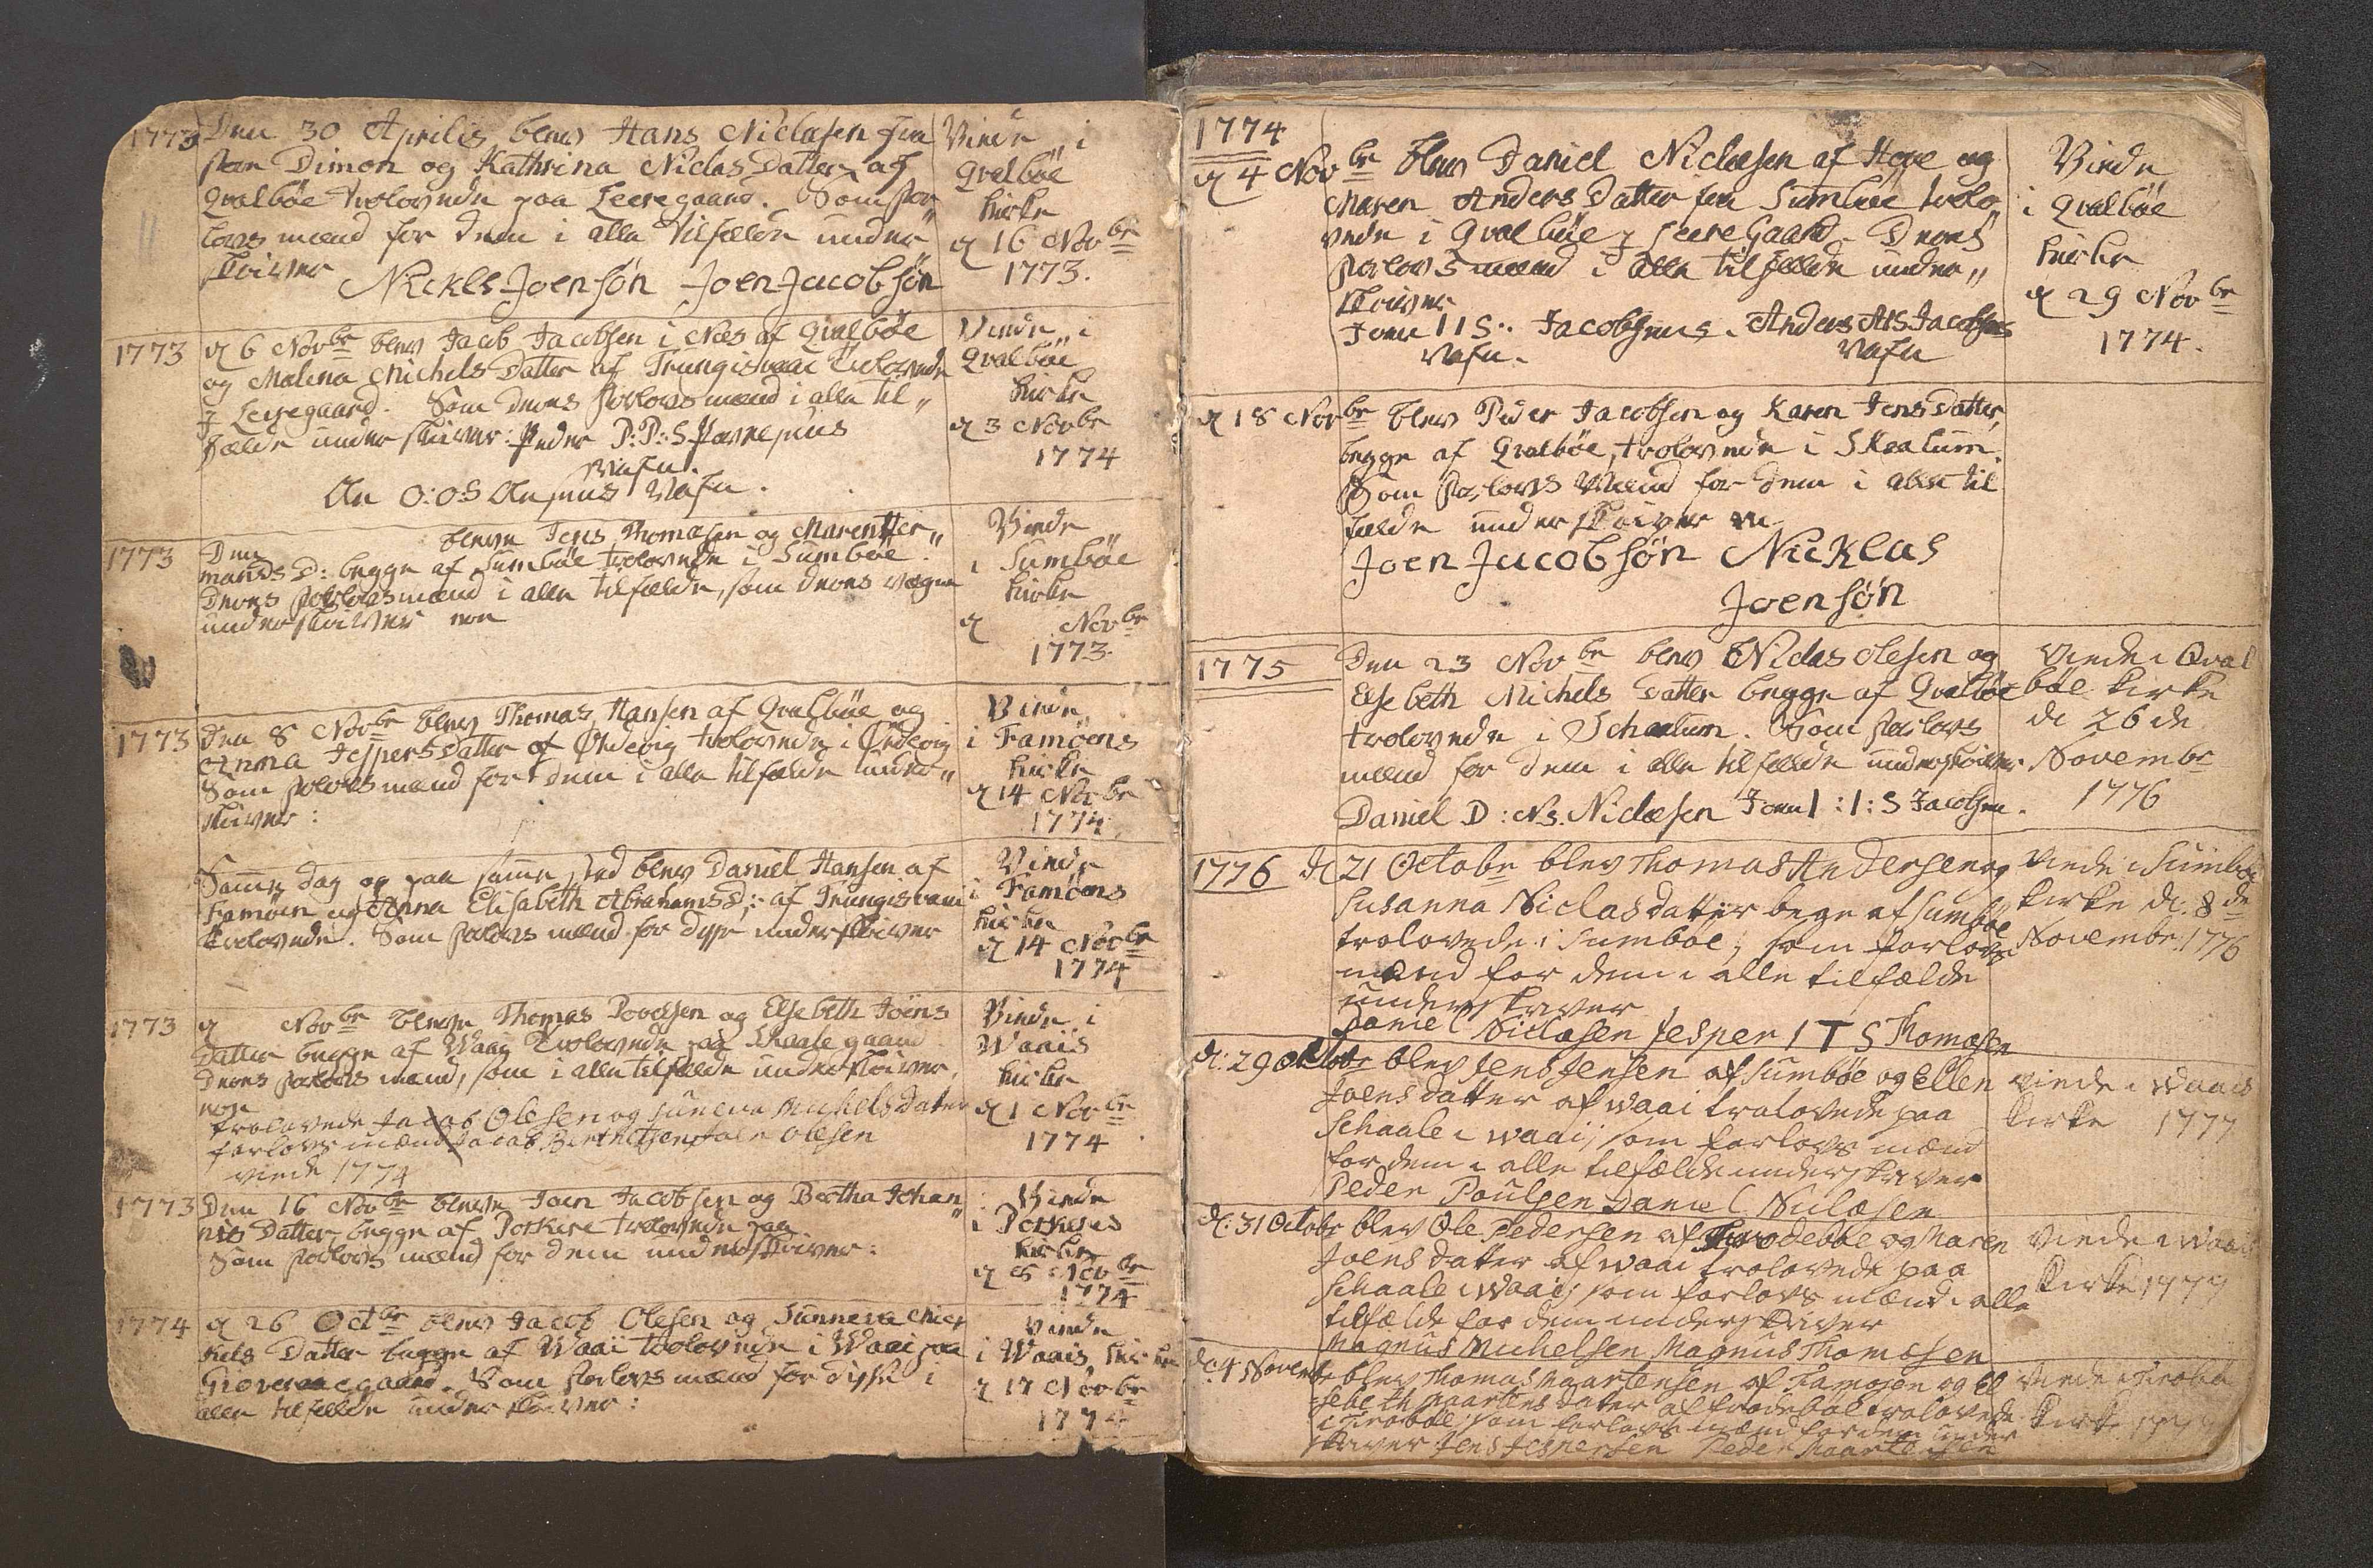 1773 Den 30 Aprilis blev Hans Niclasen fra
store Dimon og Kathrina Niclas Datter af
Qvalböe trolovede paa Leeregaard. Som for
lovsmænd for dem i alle tilfælde under"
skriver Nickles Joensøn Joen Jacobsøn
Viede i
Qvalböe
kirke
d 16 Novbr
1773.
1773 d 6 Novbr blev Jacob Jacobsen i Næs af Qvalböe
og Malena Michels Datter af Trungisvaai trolovede
J Leeregaard. Som deres forlovsmænd i alle til"
fælde underskriver: Peder P:P:S
Ole O:O:S Olesens Nafn.
Viede i
Qvalböe
kirke
d 3 Novbr
1774
1773 Den blefve Jens Thomasen og Maren Her"
mands D: begge af Sumböe trolovede i Sumböe.
Deres forlovsmænd i alle tilfælde, som deres vegne
underskriver
Viede
i Sumböe
kirke
d Novbr
1773.
1773 Den 8 Novbr blev Thomas Hansen af Qvalböe og
Anna Jespers Datter af Ördevig trolovede i Ördevig
Som forlovsmænd for dem i alle tilfælde under"
skriver:
Viede
i Famöens
kirke
d 14 Novbr
1774
Samme dag og paa samme sted blev Daniel Hansen af
Famöien og Anna Elisabeth Abrahams D: af Trungisvaai
trolovede. Som forlovsmænd for dysse underskriver
Viede
i Famöens
kirke
d 14 Novbr
1774
1773 d Novbr blefve Thomas Povelsen og Elsebeth Joens
Datter begge af Waaij trolovede paa Skaale gaard
Deres forlovs mænd, som i alle tilfælde underskriver,
trolovede Jacob Olesen og Sunneva Michelsdatter
forlovs mænd Jacob Olesen
viede 1774
Viede i
Waais
kirke
d 1 Novbr
1774
1773 Den 16 Novbr blefve Joen Jacobsen og Bertha Johan"
nes Datter begge af Porkere trolovede paa
Som forlovs mænd for dem underskriver:
Viede
i Porkeres
kirke
d 8 Novbr
1774
1774 d 26 Octbr blev Jacob Olesen og Sunneva Mic"
kels Datter begge af Waai trolovede i Waai paa
Som forlovs mænd for dysse i
alle tilfælde underskriver:
Viede
i Waais kirke
d 17 Novbr
1774
1774
d 4 Novbr blev Daniel Niclasen af Hove og
Maren Anders Datter fra Sumböe trolo"
vede i Qvalböe J Leere Gaard. Deres
forlovsmænd i alle tilfælde under"
skriver
Joen I I S: Jacobsens. Anders AIS Jacobsens
Nafn. Nafn
Viede
i Qvalböe
kirke
d 29 Novbr
1774.
d 18 Novbr blev Peder Jacobsen og Karen Jens Datter,
begge af Qvalböe, trolovede i Skaalum.
Som forlovs Mænd for dem i alle til
fælde underskriver
Joen Jacobsøn Nicklas
Joensøn
1775 Den 23 Novbr blev Niclas Olesen og
Elsebeth Michels Datter begge af Qvalböe
trolovede i Schaalum. Som forlovs
mænd for dem i alle tilfælde underskriver
Daniel D: NS. Niclasen Joen I:I:S Jacobsen.
Viede i Qval
böe kirke
de 26 de
Novembr
1776
1776 d 21 Octobr blev Thomas Andersen og
Susanna Niclasdatter bege af Sumböe
trolovede i Sumböe, som forlovs
mænd for dem i alle tilfælde
underskriver
Daniel Niclasen Jesper I T S Thomasen
viede i Sumböe
kirke d. 8 de
Novembr 1776
d: 29 Octobr blev Jens Jensen af Sumböe og Ellen
Joensdatter af Waai trolovede paa
Schaale i Waaij som forlovs mænd
for dem i alle tilfælde underskriver
Peder Poulsen Daniel Niclasen
viede i Waais
kirke 1777
d: 31 Octobr blev Ole Pedersen af Frodeböe og Maren
Joensdatter af Waai trolovede paa
Schaale i Waaij som forlovs mænd i alle
tilfælde for dem underskriver
Magnus Michelsen Magnus Thomasen
viede i Waais
kirke 1777
d: 4 Novembr blev Thomas Maartensen af Famöjen og El
sebeth Maartens dater af Frodeböe trolovede
i Froböe, som forlovs mænd for dem under
skriver Jens Jespersen Peder Maartensen
viede i Froböe
kirke